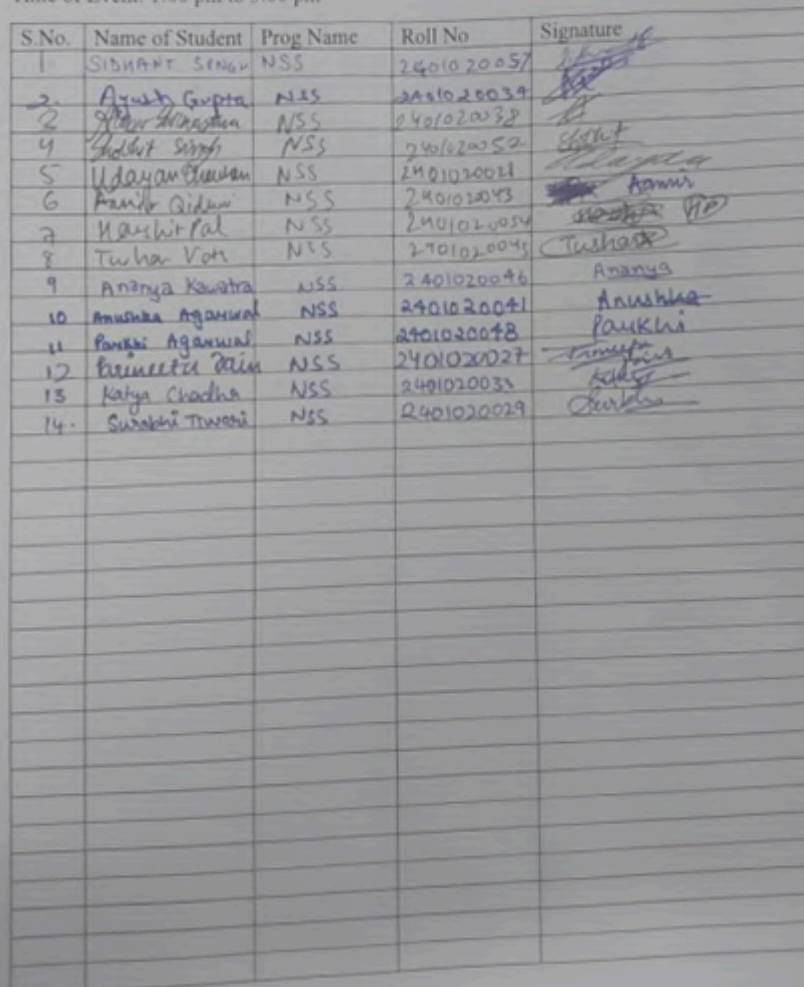 S.No. Name of Student Prog Name Roll No Signature
1 SIDHANT SINGH NSS 2401020057
2. Ayush Gupta NSS 2401020034
NSS 2401020038
4 Singh NSS 2401020052
5 Udayan Chauhan NSS 2401020021
6 NSS 2401020043 Aamir
7 Harshit Pal NSS 2401020054
8 Tushar Vats NSS 2401020045 Tushar
9 Ananya Kawatra NSS 2401020046 Ananya
10 Anushka Agarwal NSS 2401020041 Anushka
11 Paukhi Agarwal NSS 2401020048 Paukhi
12 Parineeta Jain NSS 2401020027
13 Katya Chadha NSS 2401020033
14. Surabhi Tiwari NSS 2401020029